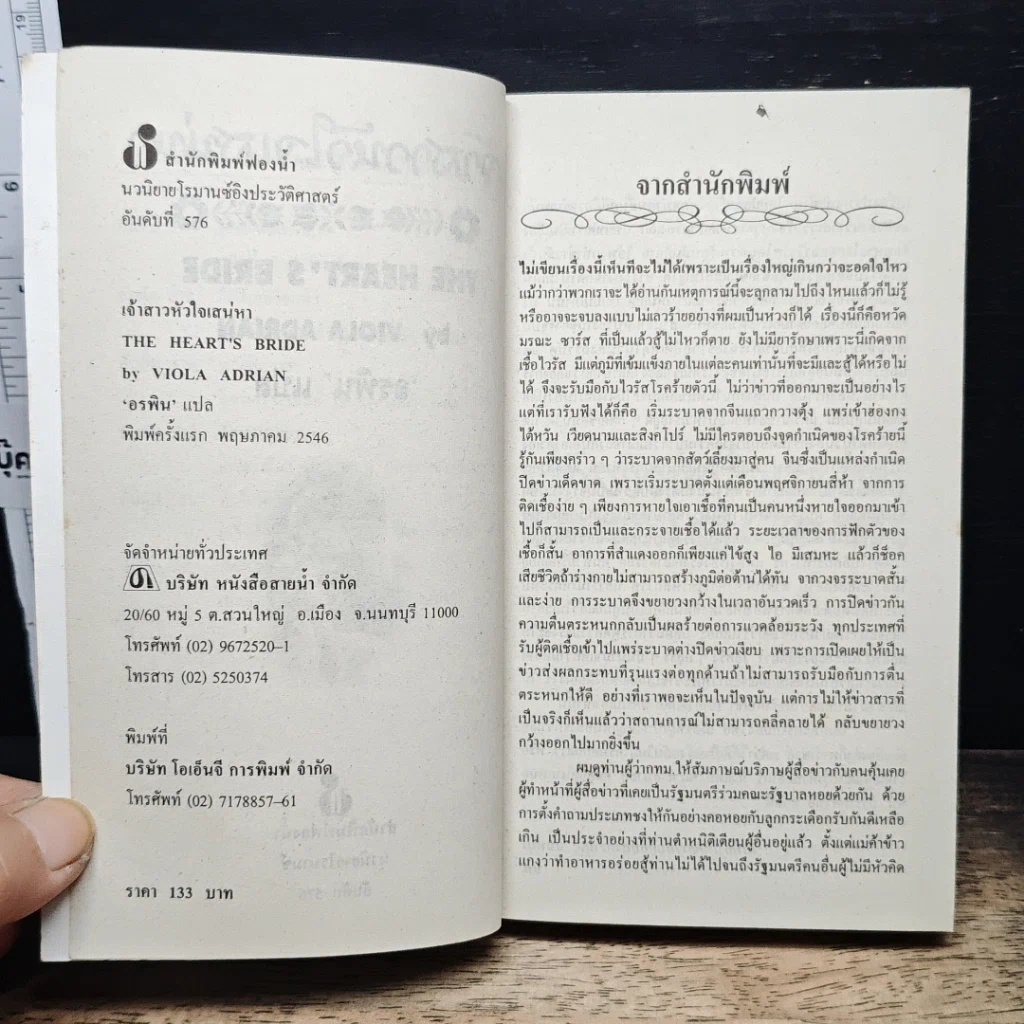 สำนักพิมพ์ฟองน้ำ
นวนิยายโรมานซ์อิงประวัติศาสตร์
อันดับที่ 576
เจ้าสาวหัวใจเสน่หา
THE HEART'S BRIDE
by VIOLA ADRIAN
'อรพิน' แปล
พิมพ์ครั้งแรก พฤษภาคม 2546
จัดจำหน่ายทั่วประเทศ
บริษัท หนังสือสายน้ำ จำกัด
20/60 หมู่ 5 ต.สวนใหญ่ อ.เมือง จ.นนทบุรี 11000
โทรศัพท์ (02) 9672520-1
โทรสาร (02) 5250374
พิมพ์ที่
บริษัท โอเอ็นจี การพิมพ์ จำกัด
โทรศัพท์ (02) 7178857-61
ราคา 133 บาท
จากสำนักพิมพ์
ไม่เขียนเรื่องนี้เห็นทีจะไม่ได้เพราะเป็นเรื่องใหญ่เกินกว่าจะอดใจไหว
แม้ว่ากว่าพวกเราจะได้อ่านกันเหตุการณ์นี้จะลุกลามไปถึงไหนแล้วก็ไม่รู้
หรืออาจจะจบลงแบบไม่เลวร้ายอย่างที่ผมเป็นห่วงก็ได้ เรื่องนี้ก็คือหวัด
มรณะ ซาร์ส ที่เป็นแล้วสู้ไม่ไหวก็ตาย ยังไม่มียารักษาเพราะนี่เกิดจาก
เชื้อไวรัส มีแต่ภูมิที่เข้มแข็งภายในแต่ละคนเท่านั้นที่จะมีและสู้ได้หรือไม่
ได้ จึงจะรับมือกับไวรัสโรคร้ายตัวนี้ ไม่ว่าข่าวที่ออกมาจะเป็นอย่างไร
แต่ที่เรารับฟังได้ก็คือ เริ่มระบาดจากจีนแถวกวางตุ้ง แพร่เข้าฮ่องกง
ไต้หวัน เวียดนามและสิงคโปร์ ไม่มีใครตอบถึงจุดกำเนิดของโรคร้ายนี้
รู้กันเพียงคร่าว ๆ ว่าระบาดจากสัตว์เลี้ยงมาสู่คน จีนซึ่งเป็นแหล่งกำเนิด
ปิดข่าวเด็ดขาด เพราะเริ่มระบาดตั้งแต่เดือนพฤศจิกายนสี่ห้า จากการ
ติดเชื้อง่าย ๆ เพียงการหายใจเอาเชื้อที่คนเป็นคนหนึ่งหายใจออกมาเข้า
ไปก็สามารถเป็นและกระจายเชื้อได้แล้ว ระยะเวลาของการฟักตัวของ
เชื้อก็สั้น อาการที่สำแดงออกก็เพียงแค่ไข้สูง ไอ มีเสมหะ แล้วก็ช็อค
เสียชีวิตถ้าร่างกายไม่สามารถสร้างภูมิต่อต้านได้ทัน จากวงจรระบาดสั้น
และง่าย การระบาดจึงขยายวงกว้างในเวลาอันรวดเร็ว การปิดข่าวกัน
ความตื่นตระหนกกลับเป็นผลร้ายต่อการแวดล้อมระวัง ทุกประเทศที่
รับผู้ติดเชื้อเข้าไปแพร่ระบาดต่างปิดข่าวเงียบ เพราะการเปิดเผยให้เป็น
ข่าวส่งผลกระทบที่รุนแรงต่อทุกด้านถ้าไม่สามารถรับมือกับการตื่น
ตระหนกให้ดี อย่างที่เราพอจะเห็นในปัจจุบัน แต่การไม่ให้ข่าวสารที่
เป็นจริงก็เห็นแล้วว่าสถานการณ์ไม่สามารถคลี่คลายได้ กลับขยายวง
กว้างออกไปมากยิ่งขึ้น
ผมดูท่านผู้ว่ากทม.ให้สัมภาษณ์บริภาษผู้สื่อข่าวกับคนคุ้นเคย
ผู้ทำหน้าที่ผู้สื่อข่าวที่เคยเป็นรัฐมนตรีร่วมคณะรัฐบาลหอยด้วยกัน ด้วย
การตั้งคำถามประเภทชงให้กันอย่างคอหอยกับลูกกระเดือกรับกันดีเหลือ
เกิน เป็นประจำอย่างที่ท่านตำหนิติเตียนผู้อื่นอยู่แล้ว ตั้งแต่แม่ค้าข้าว
แกงว่าทำอาหารอร่อยสู้ท่านไม่ได้ไปจนถึงรัฐมนตรีคนอื่นผู้ไม่มีหัวคิด